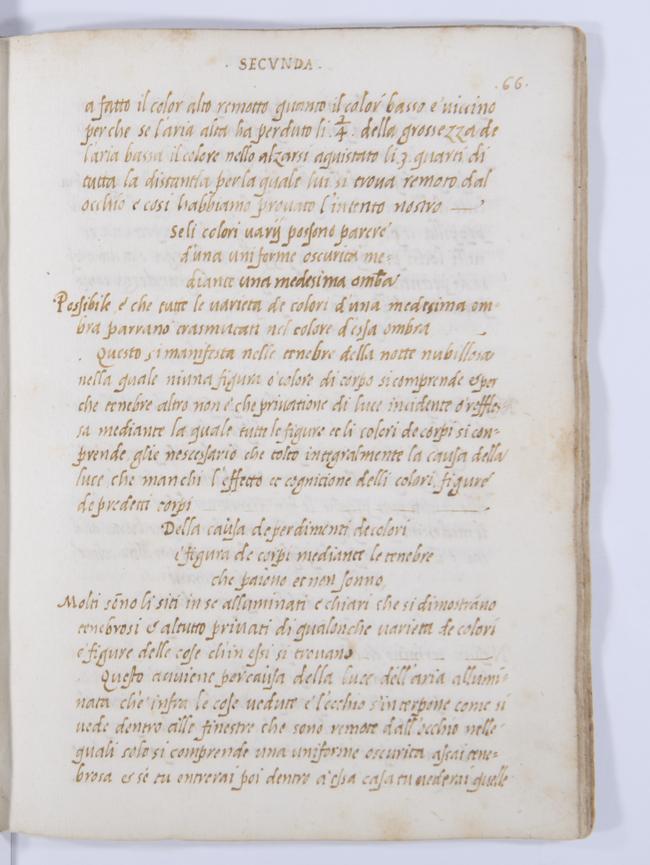 · SECVNDA ·
· 66 ·
a fatto il color alto remotto quanto il color basso e' vicino
per che se l'aria alta ha perduto li 2/4 della grossezza de
l'aria bassa il colore nello alzarsi aquistato li 3 quarti di
tutta la distantia per la quale lui si trova remoto dal
occhio e cosi habbiamo provato l'intento nostro
Se li colori varij possono parere
d'una uniforme oscurita me-
diante una medesima ombra
Possibile e' che tutte le varieta de colori d'una medesima om-
bra parrano trasmutati nel colore d'essa ombra
Questo si manifesta nelle tenebre della notte nubillosa
nella quale niuna figura o' colore di corpo si comprende & per
che tenebre altro non e' che privatione di luce incidente o' reffles-
sa mediante la quale tutte le figure et li colori de corpi si con-
prende glie nescessario che tolto integralmente la causa della
luce che manchi l'effetto et cognitione delli colori, figure
de predetti corpi
Della causa de perdimenti de colori
e figura de corpi mediante le tenebre
che paiono et non sonno,
Molti sōno li siti in se alluminati e chiari che si dimostrano
tenebrosi & al tutto privati di qualonche varieta de colori
e figure delle cose ch'in essi si trovano
Questo aviene per causa della luce dell'aria allumi-
nata che infra le cose vedute e l'occhio s'interpone come si
vede dentro alle finestre che sono remote dall'occhio nelle
quali solo si comprende una uniforme oscurita assai tene-
brosa & se tu entrerai poi dentro a' essa casa tu vederai quelle